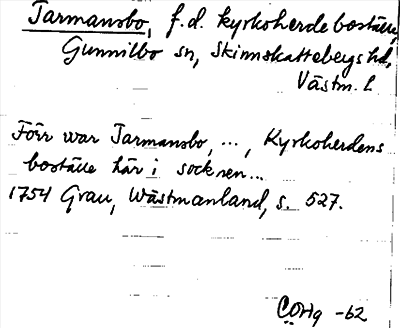 Jarmansbo, f.d. kyrkoherdeboställe,
Gunnilbo sn, Skinnskattebergs hd,
Västm. L
Förr war Jarmansbo, ..., Kyrkoherdens
boställe här i socknen...
1754 Grau, Wästmanland, s. 527.
-62